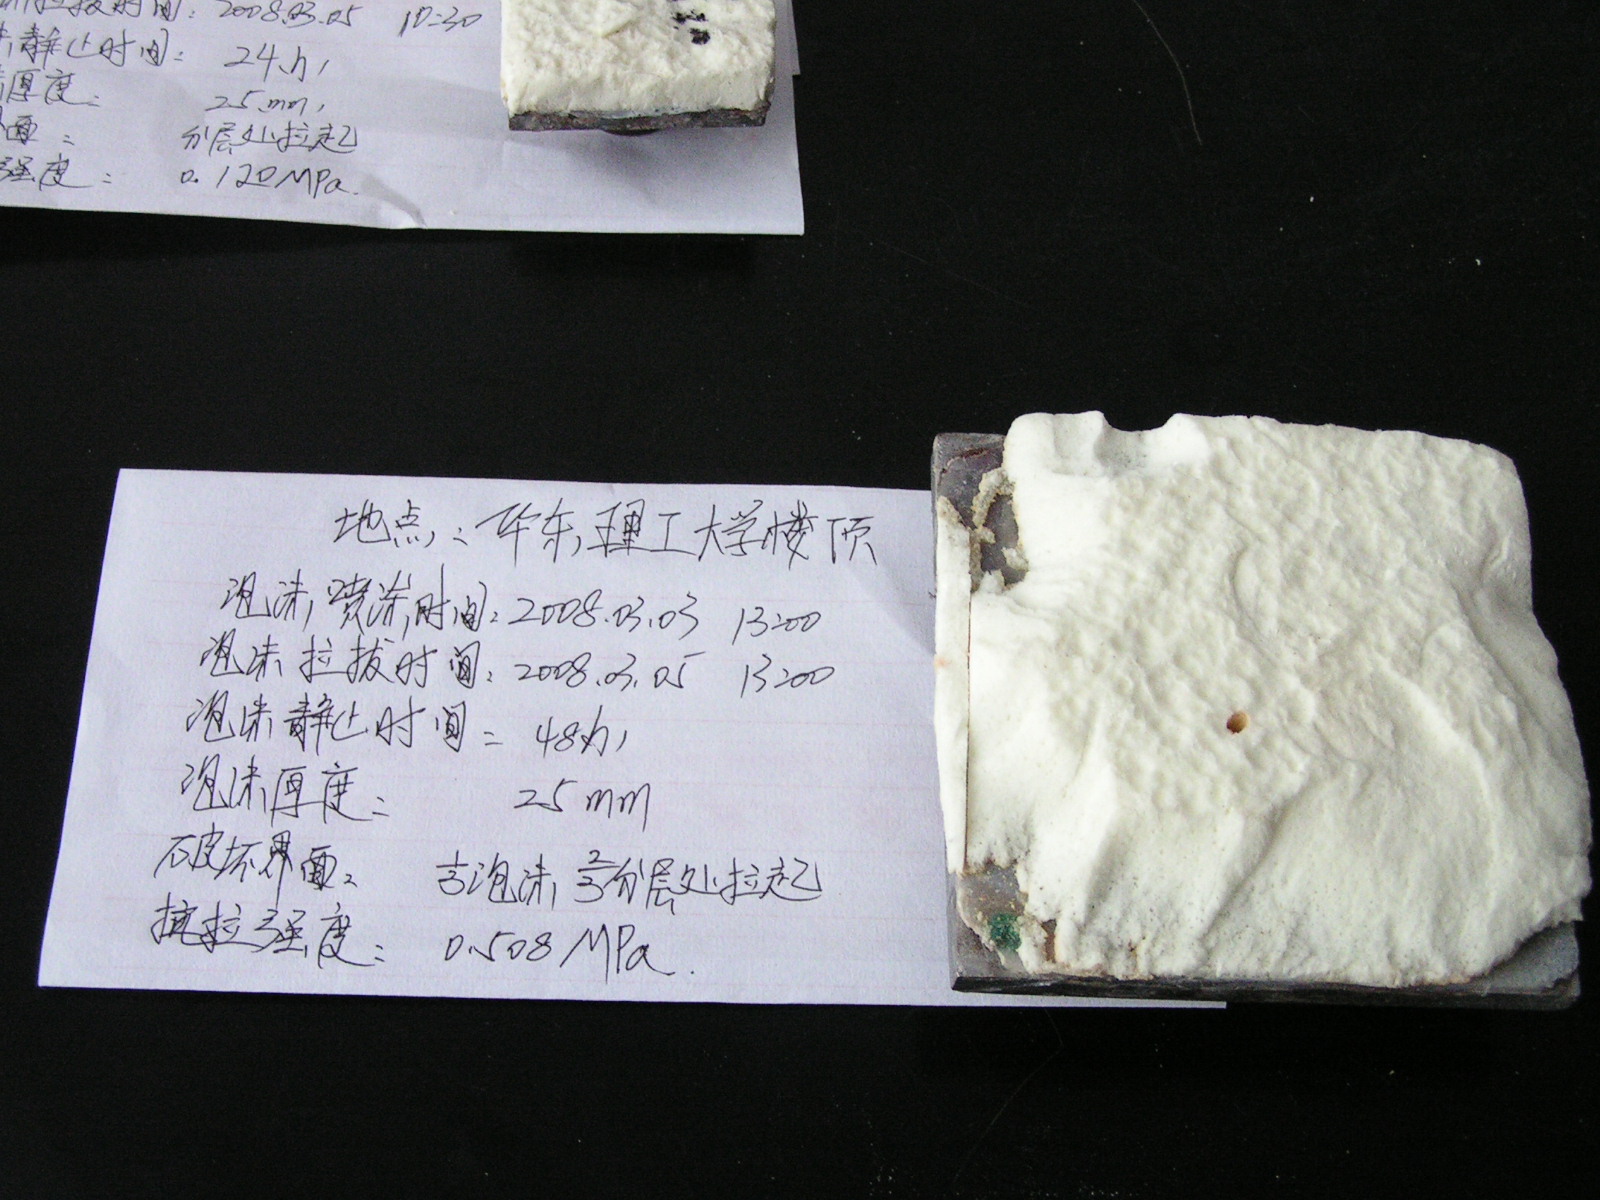 拉拔时间: 2008.03.05 10:30
静止时间: 24h,
厚度: 25mm,
面: 分层处拉起
强度: 0.120MPa.
地点: 华东理工大学楼顶
泡沫喷涂时间: 2008.03.03 13:00
泡沫拉拔时间: 2008.03.05 13:00
泡沫静止时间: 48h,
泡沫厚度: 25mm
破坏界面: 古泡沫 2/3分层处拉起
抗拉强度: 0.508MPa.